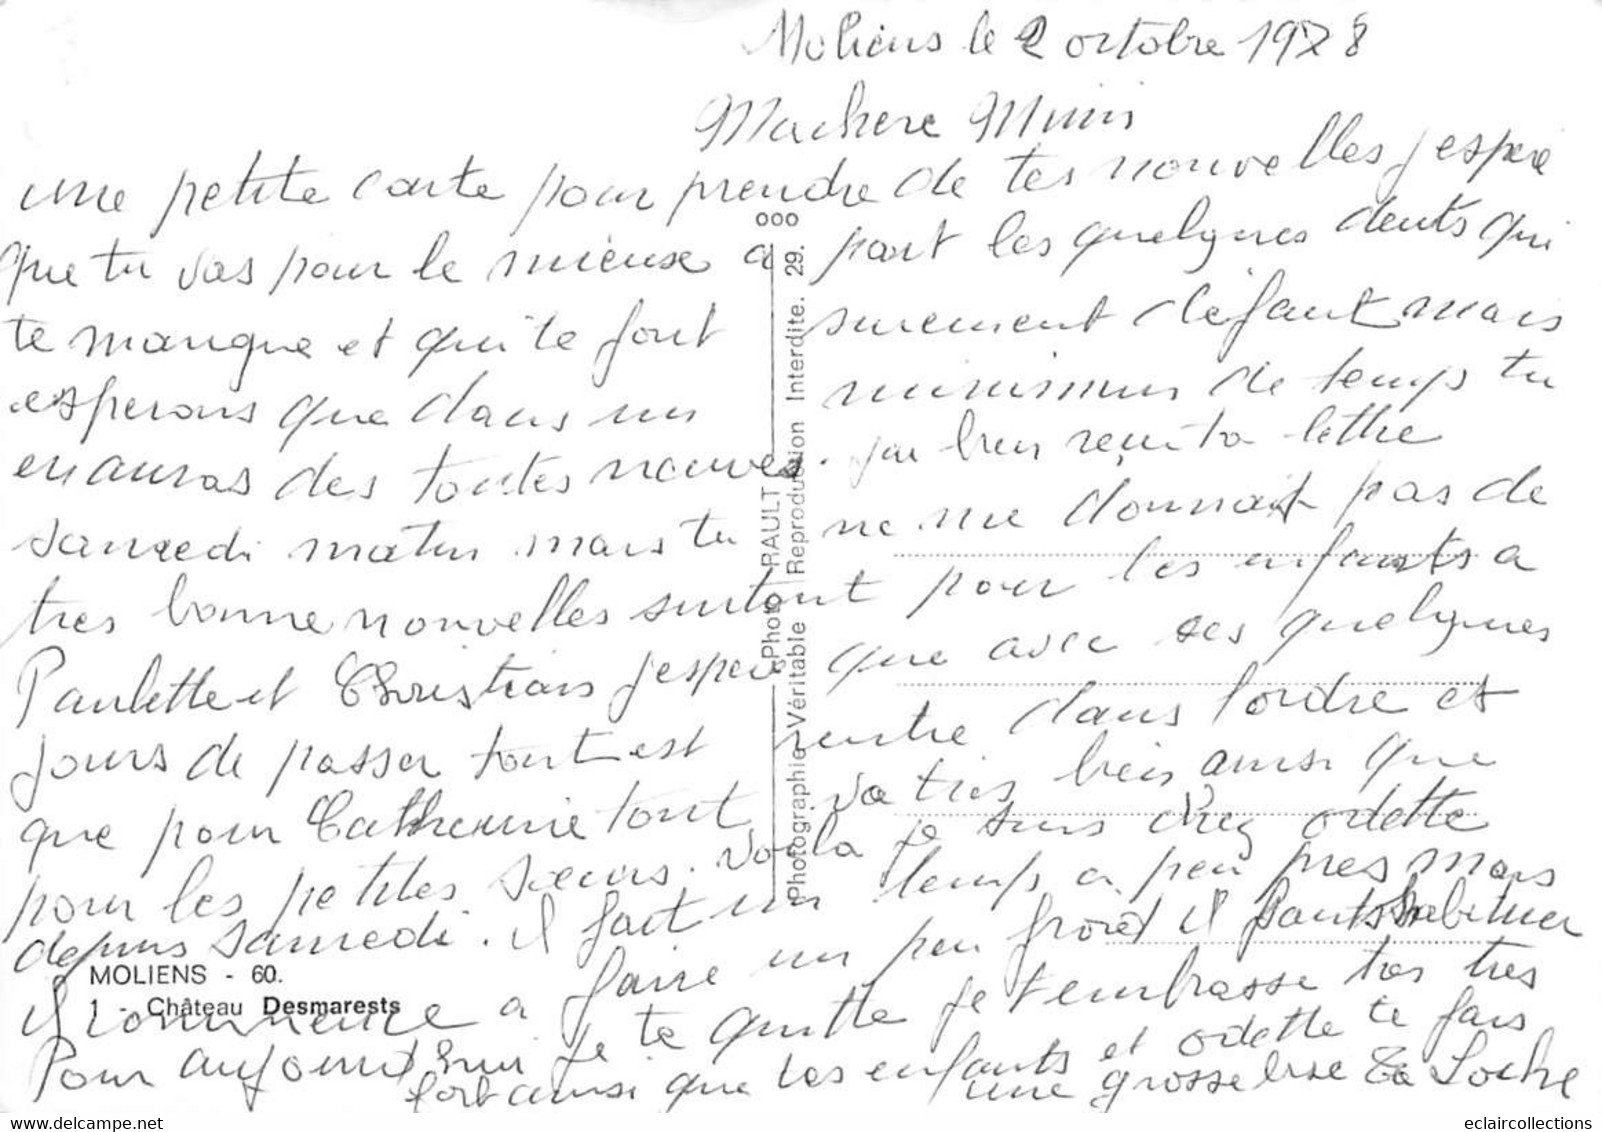 Moliens le 2 octobre 1978
Machere Mimi
une petite carte pour prendre de tes nouvelles jespere
que tu vas pour le mieuse a part les quelques dents qui
te manque et qui te font surement defaut mais
esperons que dans un minimum de temps tu
en auras des toutes neuves. jai bien reçu ta lettre
samedi matin mais tu ne me donnait pas de
tres bonne nouvelles surtout pour les enfants a
Paulette et Christian jespere que avec ses quelques
jours de passer tout est rentre dans lordre et
que pour Catherine tout va tres bien ainsi que
pour les petites sœurs. Voila je suis chez odette
depuis samedi. il fait un temps a peu pres mais
il commence a faire un peu froid il faut shabituer
Pour aujourd'hui je te quitte je t'embrasse tres tres
fort ainsi que les enfants et odette te fais
une grosse bise
MOLIENS - 60.
1 - Château Desmarests
ooo
Photo RAULT
Photographie Véritable Reproduction Interdite. 29.
eclaircollections